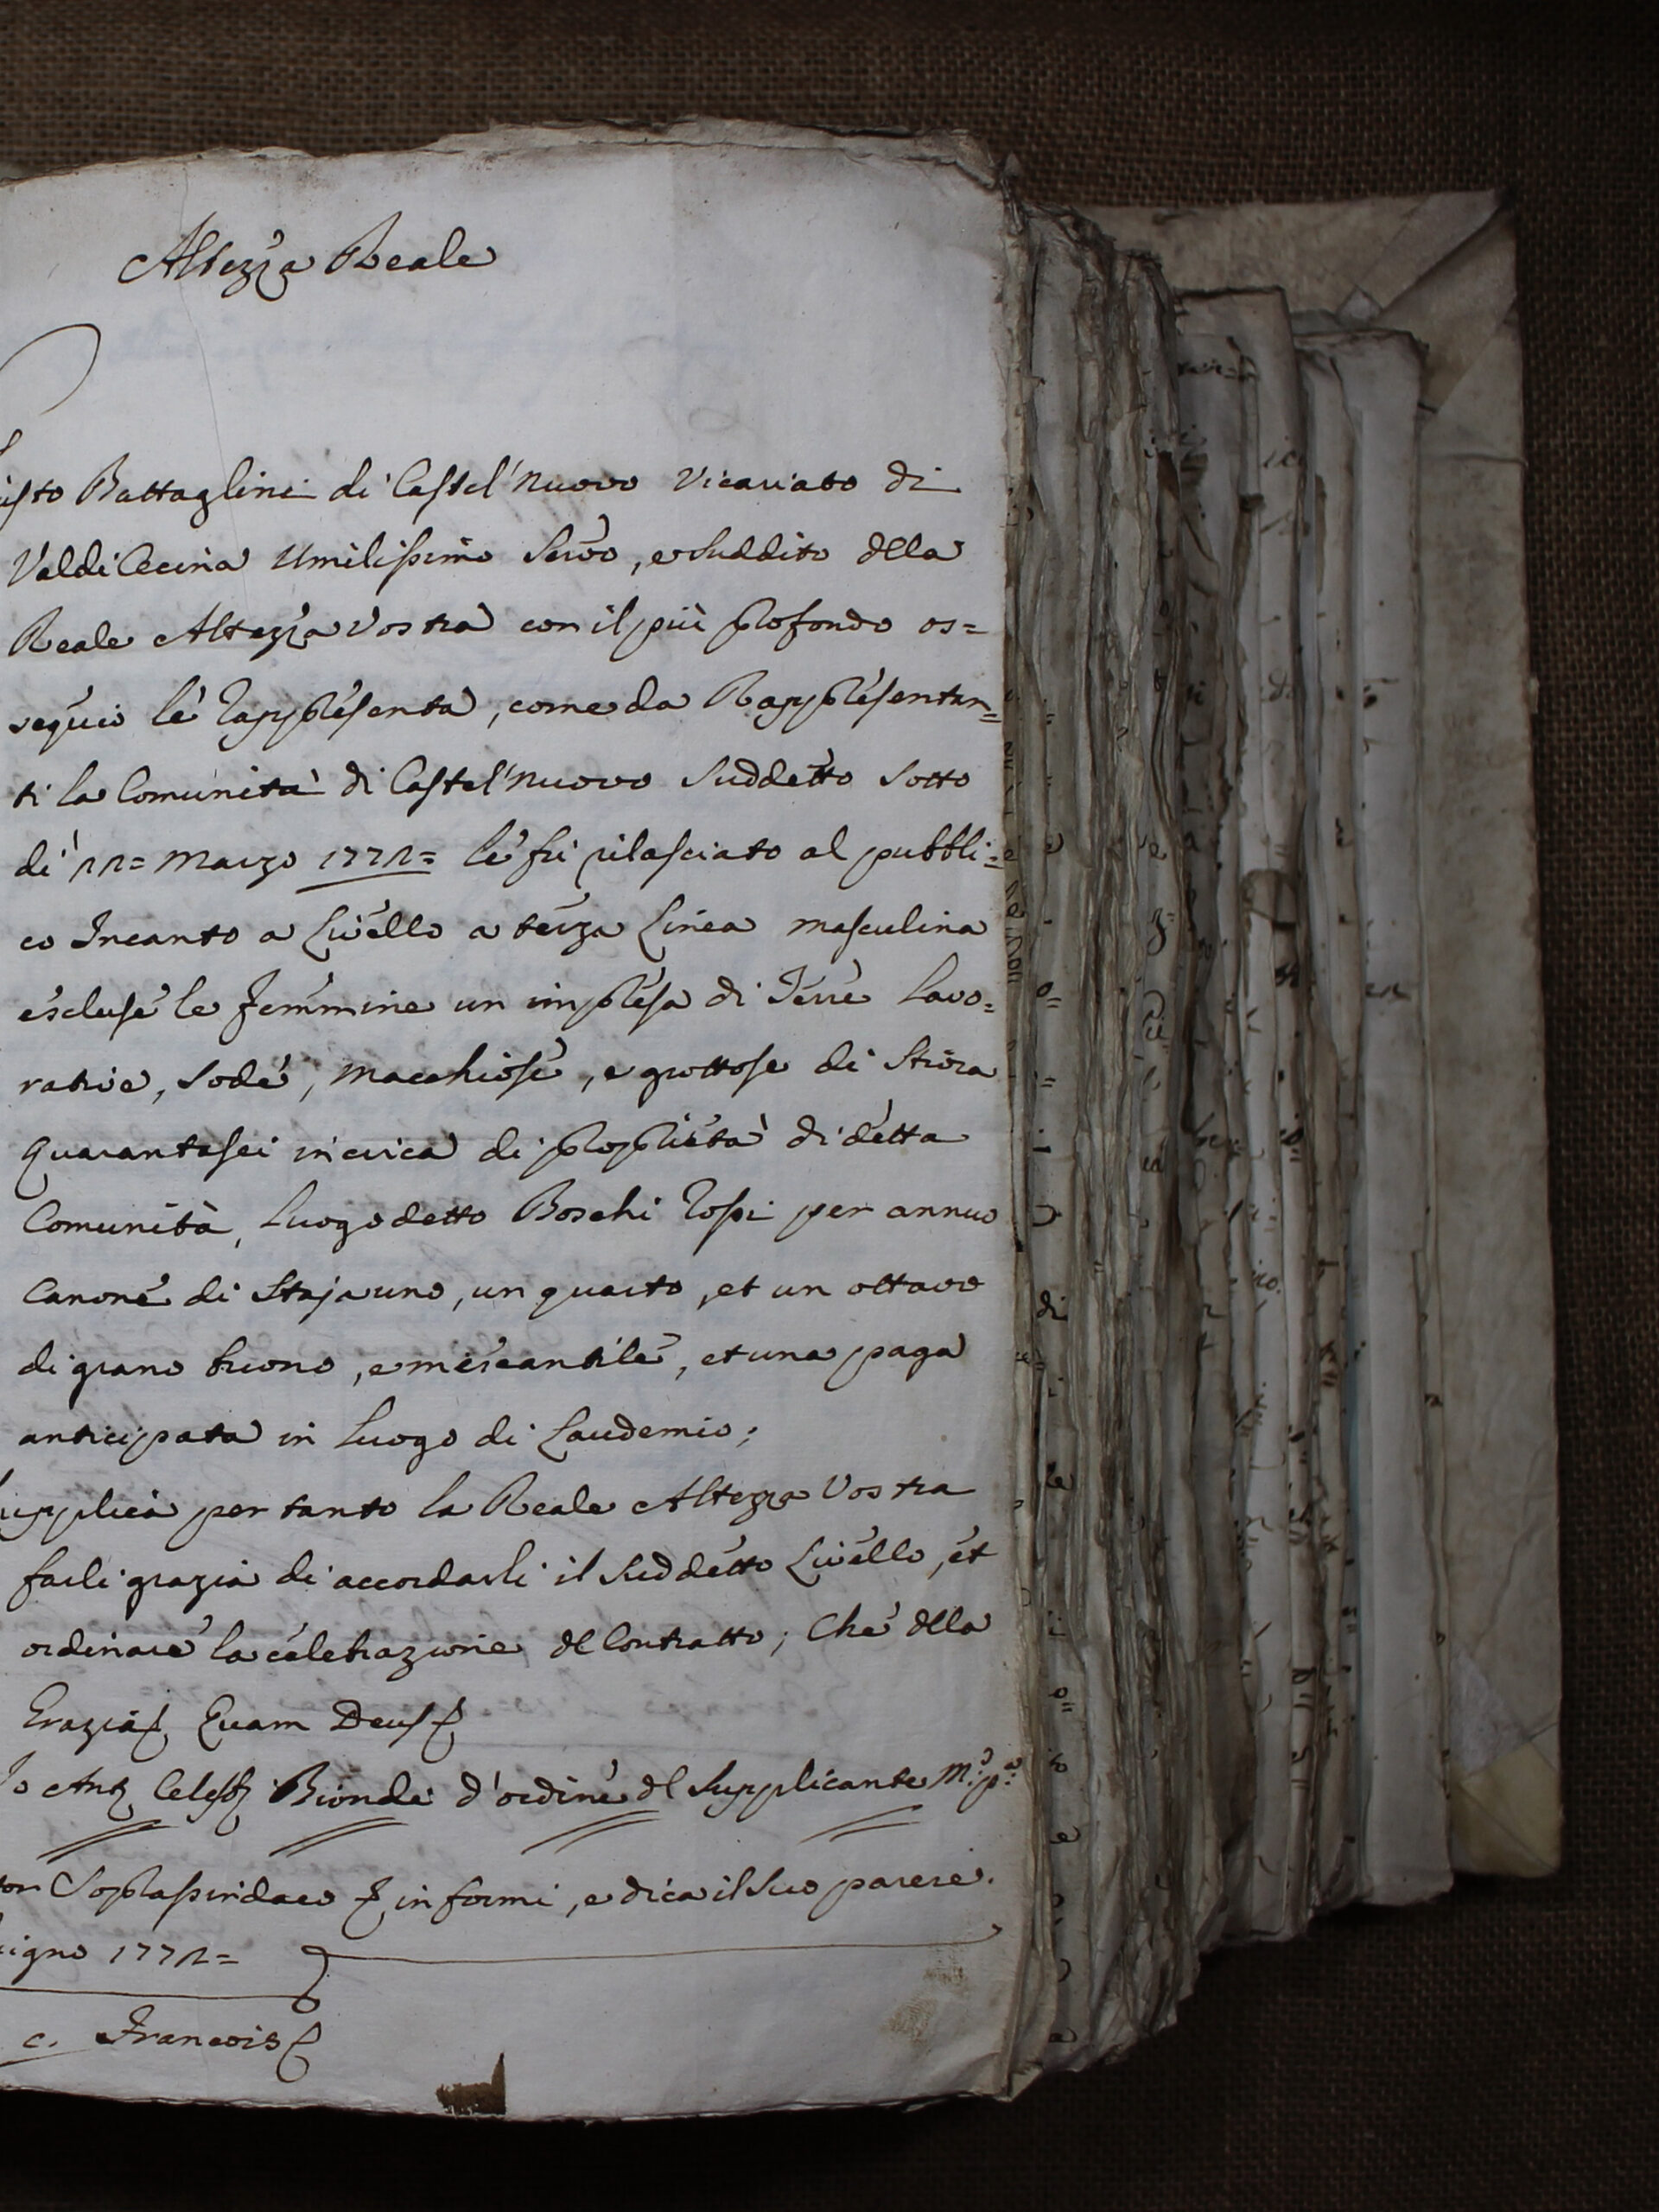 Altezza Reale
Battaglini di Castel'nuovo Vicariato di
Valdi Cecina Umilissimo Servo, e Suddito della
Reale Altezza Vostra con il più profondo os=
sequio le rappresenta, come da Rappresentan=
ti la Comunità di Castel'nuovo Suddetto Sotto
di' = Marzo le fù rilasciato al pubbli=
co Incanto a Livello a terza Linea masculina
escluse le Femmine un impresa di Terre Lavo=
rative, Sode, Macchiose, e grottose di Stiora
quarantasei in circa di proprietà di detta
Comunità, Luogo detto Boschi rossi per annuo
Canone di Staja uno, un quarto, et un ottavo
di grano buono, e mercantile, et una paga
anticipata in Luogo di Laudemio;
supplica per tanto la Reale Altezza Vostra
farli grazia di accordarli il Suddetto Livello, et
ordinare la celebrazione del Contratto; Che della
Grazia Quam Deus
Io Biondi d'ordine del Supplicante M.º p.ª
Soprasindaco informi, e dica il Suo parere.
c. Francois